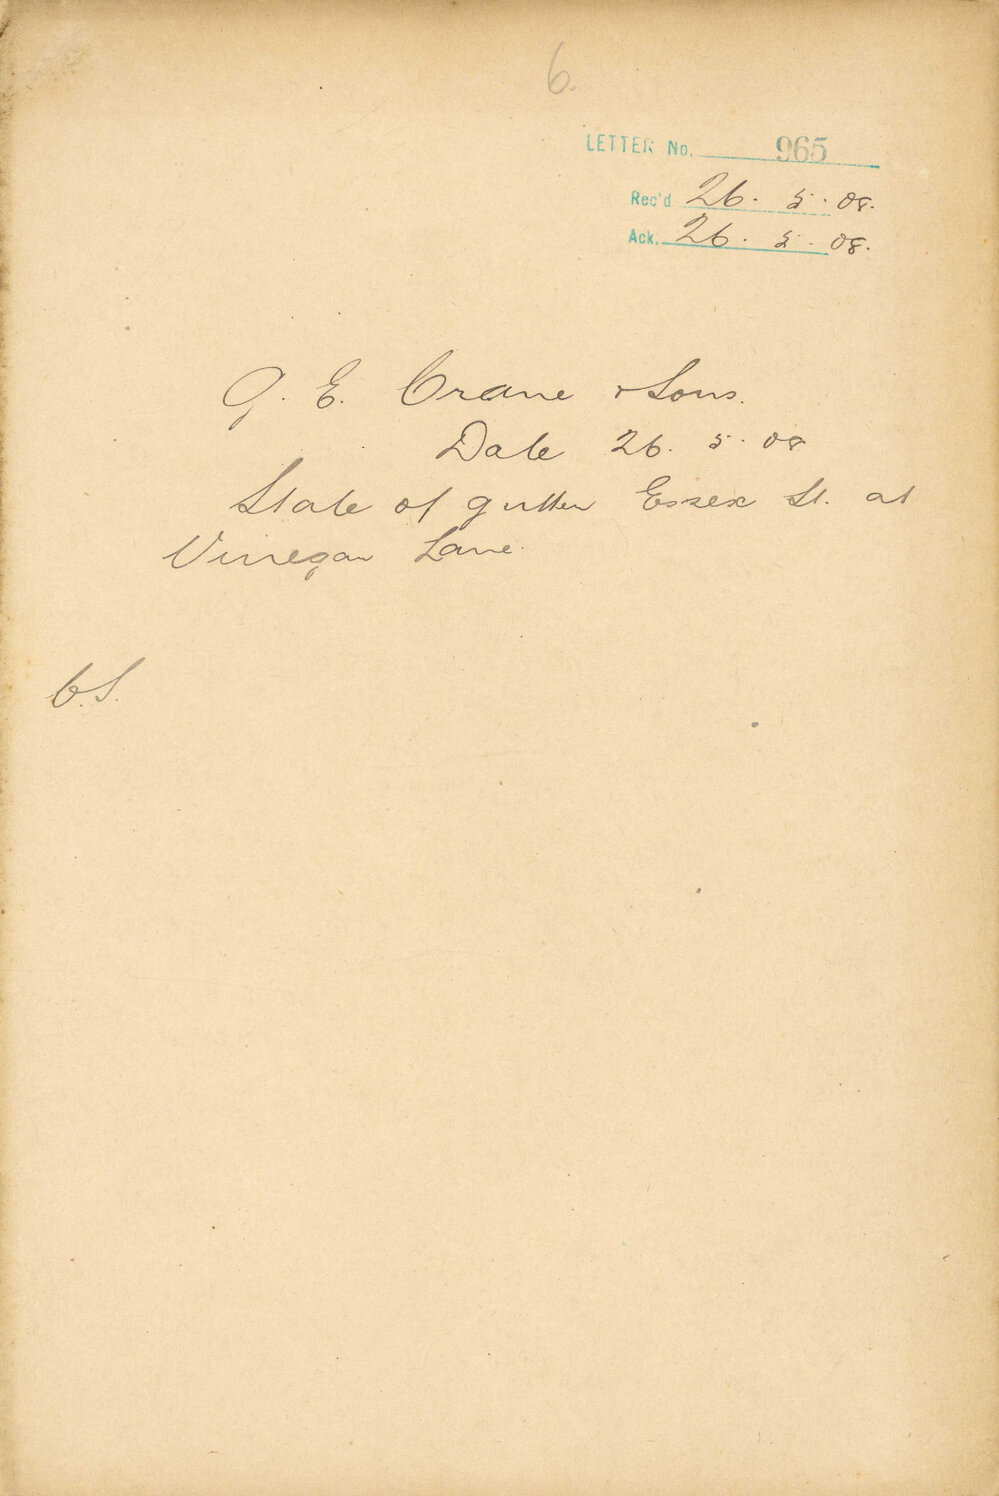 6.
LETTER No. 965
Rec'd 26. 5. 08.
Ack. 26. 5. 08.
G. E. Crane & Sons.
Date 26. 5. 08
State of gutter Essex St. at
Vinegar Lane.
C.S.